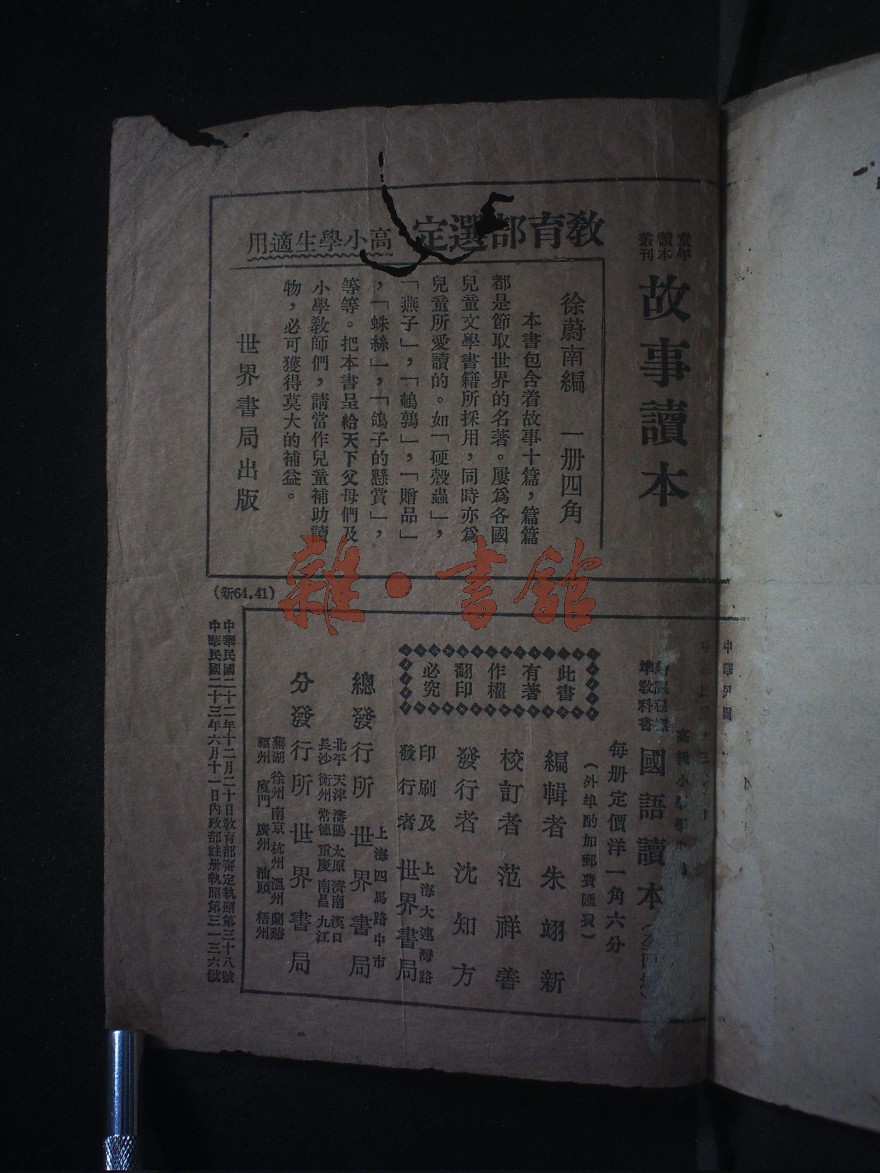 童年
讀本
叢刊
故事讀本
教育部選定
高小學生適用
徐蔚南編 一册四角
本書包含着故事十篇，篇篇
都是節取世界的名著。屢爲各國
兒童文學書籍所採用，同時亦爲
兒童所愛讀的。如「硬殼蟲」，
「燕子」，「鵪鶉」，「贈品」
，「蛛絲」，「鴿子的懸賞」，
等等。把本書呈給天下父母們及
小學教師們，請當作兒童補助讀
物，必可獲得莫大的補益。
世界書局出版
(新64.41)
雜·書館
中華民國
準教科書
國語讀本
每册定價洋一角六分
(外埠酌加郵費匯費)
編輯者 朱翊新
校訂者 范祥善
發行者 沈知方
印刷及
發行者
上海大連灣路
世界書局
此書
有著
作權
翻印
必究
上海四馬路中市
總發行所 世界書局
北平 天津 瀋陽 太原 濟南 漢口
長沙 衡州 常德 重慶 南昌 九江
分發行所 世界書局
蕪湖 徐州 南京 杭州 溫州 蘭谿
福州 廈門 廣州 汕頭 梧州
中華民國二十二年十二月二十日教育部審定執照第三十八號
中華民國二十三年六月十一日內政部註册執照第三一三六號